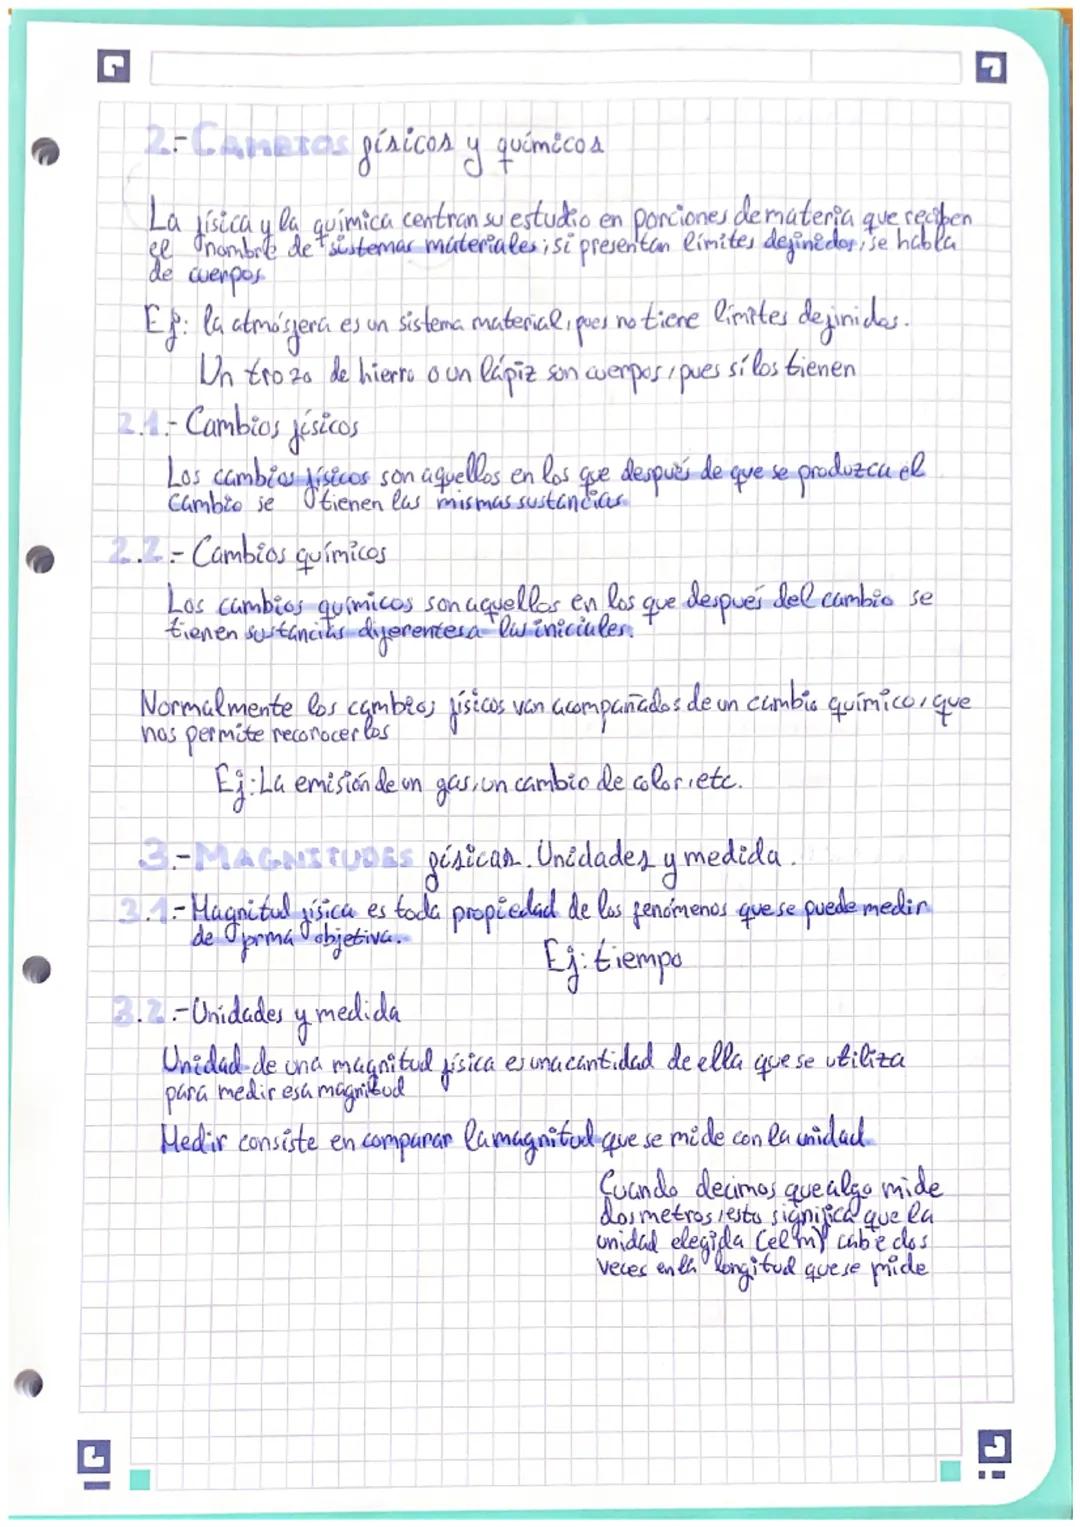 2.- CAMBIOS físicos y químicos
La física y la química centran su estudio en porciones de materia que reciben
el nombre de sistemas materiales; si presentan límites definidos, se habla
de cuerpos
Ej: la atmósfera es un sistema material, pues no tiene límites definidos.
Un trozo de hierro o un lápiz son cuerpos, pues sí los tienen
2.1.- Cambios físicos
Los cambios físicos son aquellos en los que después de que se produzca el
cambio se tienen las mismas sustancias
2.2.- Cambios químicos
Los cambios químicos son aquellos en los que después del cambio se
tienen sustancias diferentes a las iniciales.
Normalmente los cambios físicos van acompañados de un cambio químico, que
nos permite reconocerlos
Ej: La emisión de un gas, un cambio de color, etc.
3.- MAGNITUDES físicas. Unidades y medida.
3.1.- Magnitud física es toda propiedad de los fenómenos que se puede medir
de forma objetiva.
Ej: tiempo
3.2.- Unidades y medida
Unidad de una magnitud física es una cantidad de ella que se utiliza
para medir esa magnitud
Medir consiste en comparar la magnitud que se mide con la unidad
Cuando decimos que algo mide
dos metros, esto significa que la
unidad elegida (el m) cabe dos
veces en la longitud que se mide